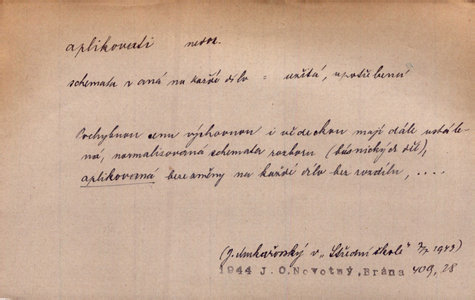 aplikovati nedok.
schemata v aná na každé dílo = užitá, upotřebená
Pochybnou cenu výchovnou i vědeckou mají dále ustále-
ná, normalisovaná schemata rozboru (básnických děl),
aplikovaná beze změny na každé dílo bez rozdílu, ....
(J. Mukařovský v „Střední škole" 1943)
1944 J.O.Novotný,Brána 409, 28